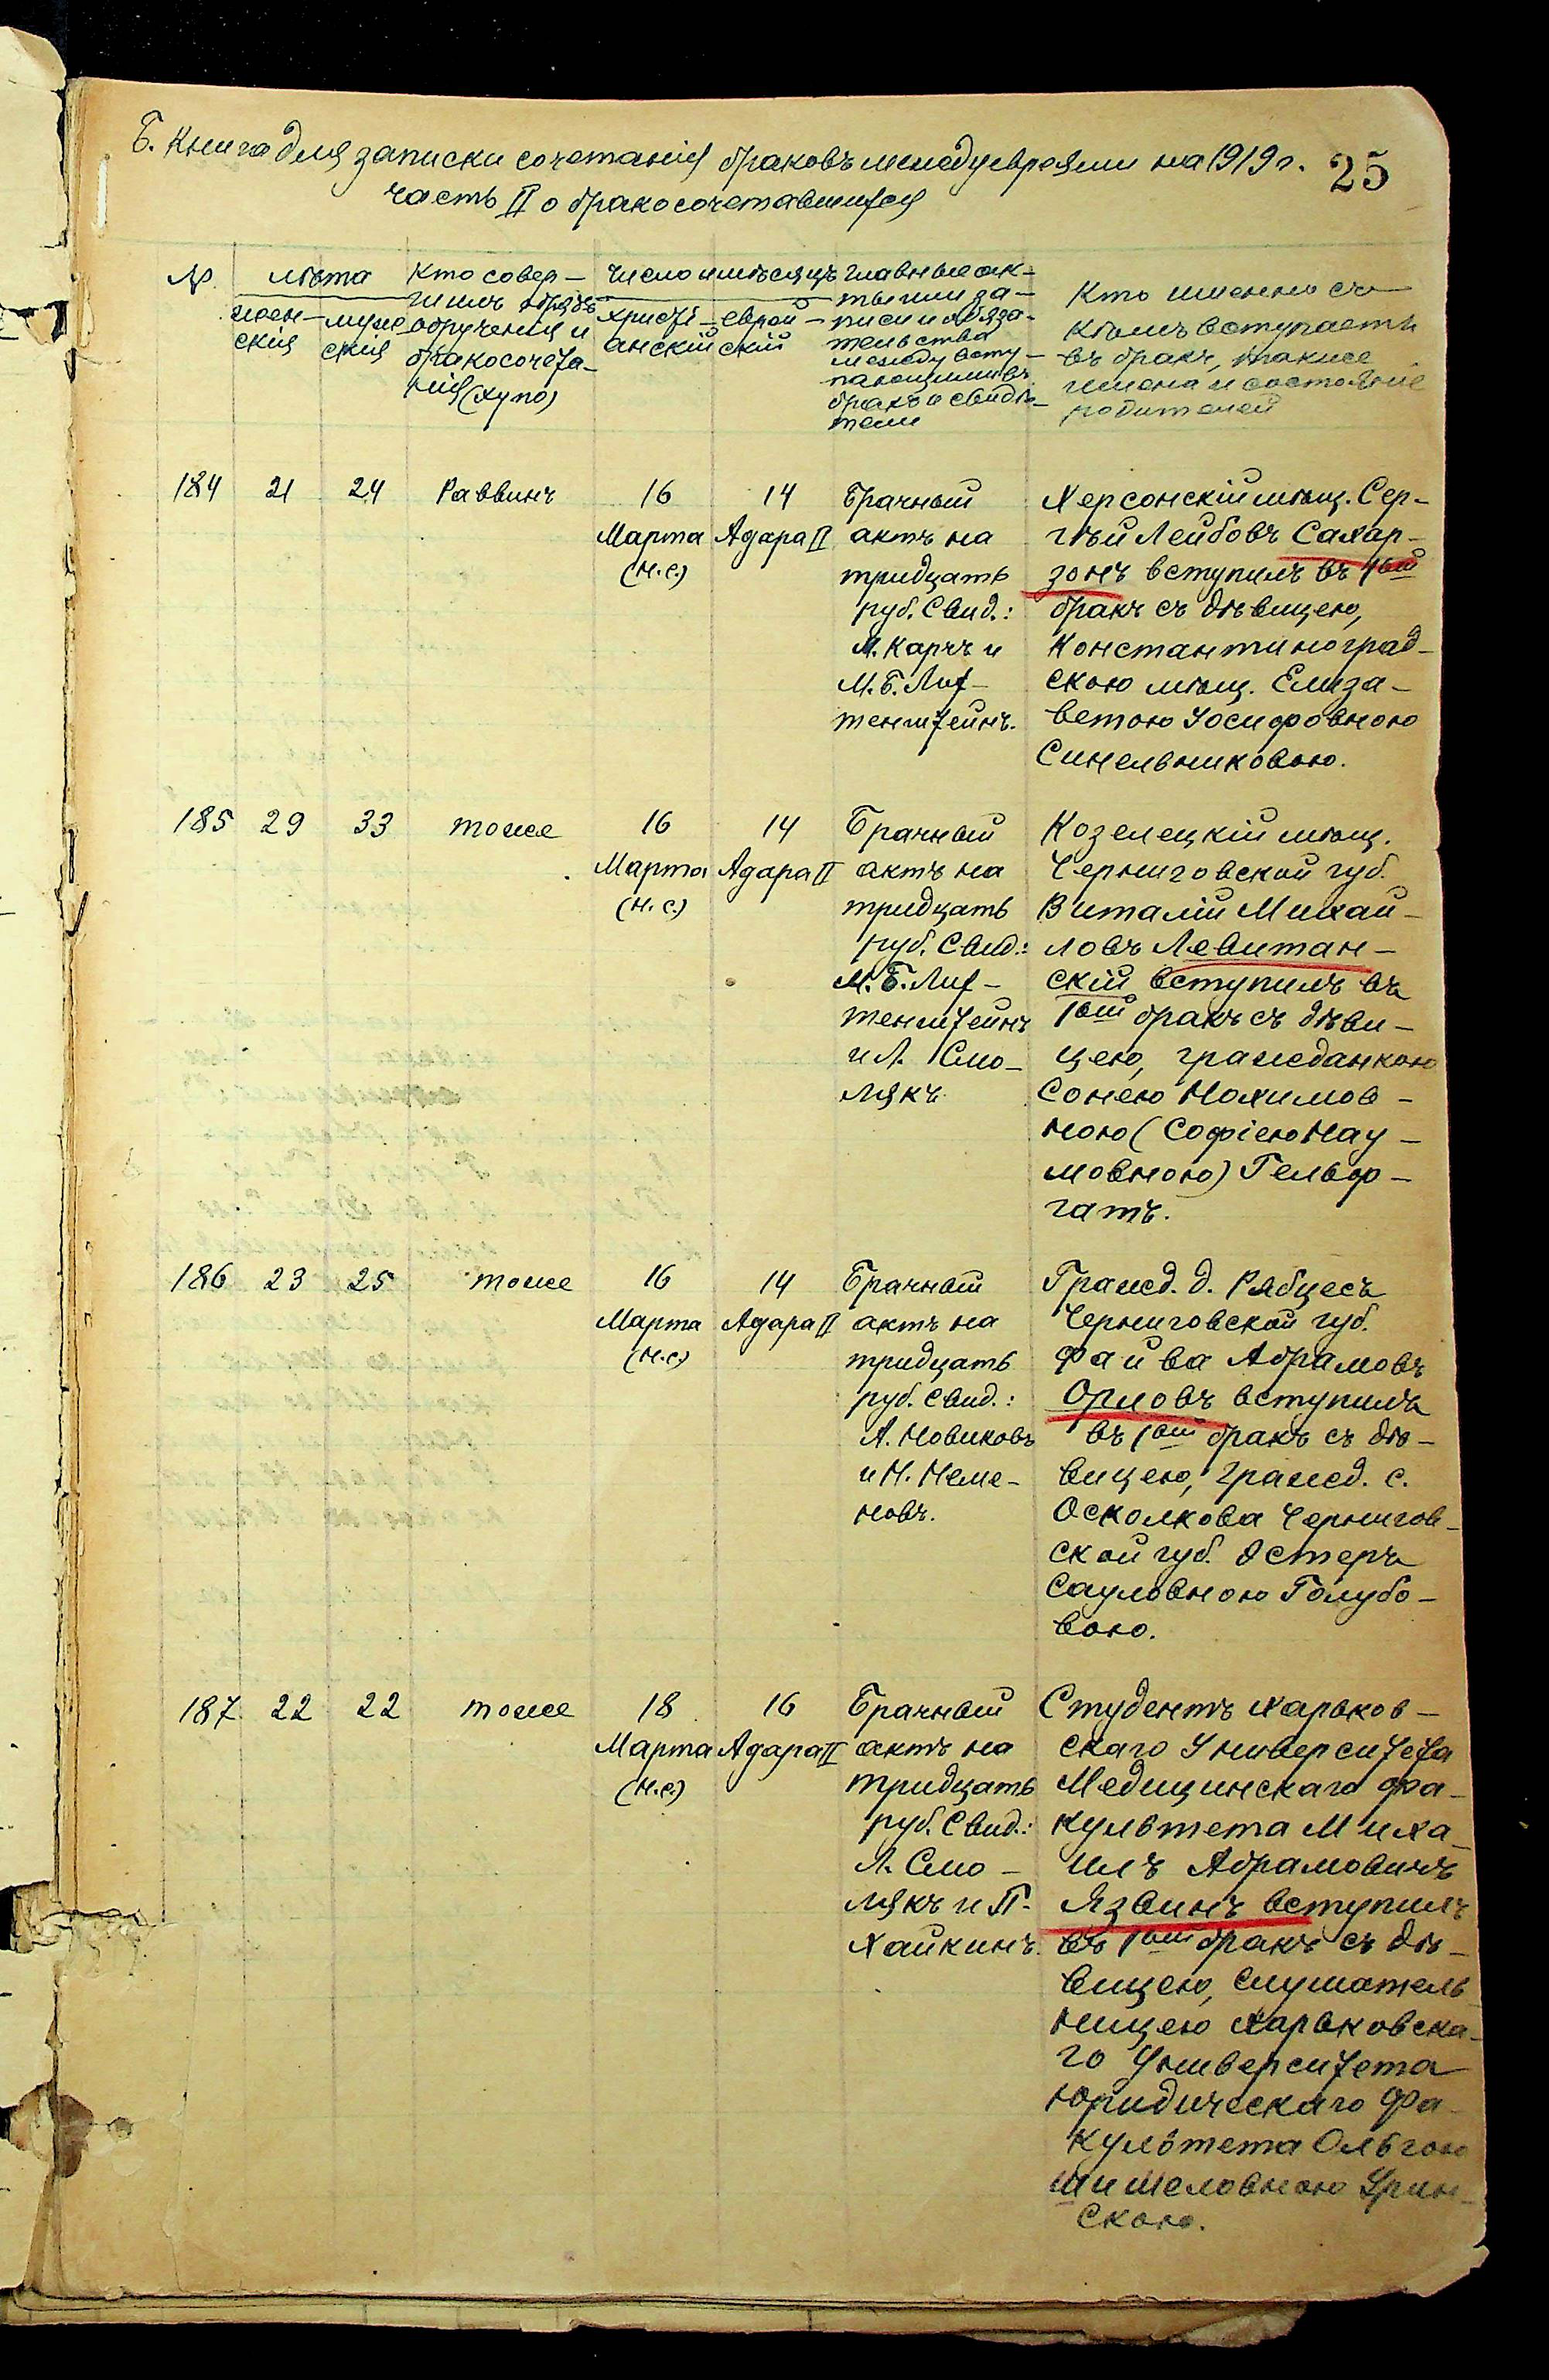 Б. Книга для записки сочетанія браковъ между евреями на 1919 г. 25
часть II о бракосочетавшихся
№
лѣта
жен-
скія
муже
скія
Кто совер-
шилъ обрядъ
обрученія и
бракосочета-
нія (хупо)
Число и мѣсяцъ
христі-
анскій
еврей-
скій
Главные ак-
ты или за-
писи и обяза-
тельства
между всту-
пающими въ
бракъ и свидѣ-
тели
Кто именно съ
кѣмъ вступаетъ
въ бракъ, также
имена и состояніе
родителей
184 21 24 Раввинъ
16
Марта
(н.с.)
14
Адара II
Брачный
актъ на
тридцать
руб. Свид.:
М. Карчъ и
М. Б. Лих-
тенштейнъ.
Херсонскій мѣщ. Сер-
гѣй Лейбовъ Сахар-
зонъ вступилъ въ 1ый
бракъ съ дѣвицею,
Константиноград-
скою мѣщ. Елиза-
ветою Іосифовною
Синельниковою.
185 29 33 тоже
16
Марта
(н.с.)
14
Адара II
Брачный
актъ на
тридцать
руб. Свид.:
М. Б. Лих-
тенштейнъ
и Л. Смо-
лякъ
Козелецкій мѣщ.
Черниговской губ.
Виталій Михай-
ловъ Левитан-
скій вступилъ въ
1ый бракъ съ дѣви-
цею, гражданкою
Сонею Нохимов-
ною (Софіею Нау-
мовною) Гельф-
гатъ.
186 23 25 тоже
16
Марта
(н.с.)
14
Адара II
Брачный
актъ на
тридцать
руб. Свид.:
А. Новиковъ
и Н. Неме-
новъ.
Гражд. д. Рябцесъ
Черниговской губ.
Файва Абрамовъ
Орловъ вступилъ
въ 1ый бракъ съ дѣ-
вицею, гражд. с.
Осколкова Чернигов-
ской губ. Эстеръ
Сауловною Голубо-
вою.
187 22 22 тоже
18
Марта
(н.с.)
16
Адара II
Брачный
актъ на
тридцать
руб. Свид.:
Л. Смо-
лякъ и П.
Хайкинъ.
Студентъ Харьков-
скаго Университета
Медицинскаго фа-
культета Миха-
илъ Абрамовичъ
Язвинъ вступилъ
въ 1ый бракъ съ дѣ-
вицею, слушатель
ницею Харьковска-
го Университета
юридическаго фа-
культета Ольгою
Шимеловною Урин-
скою.